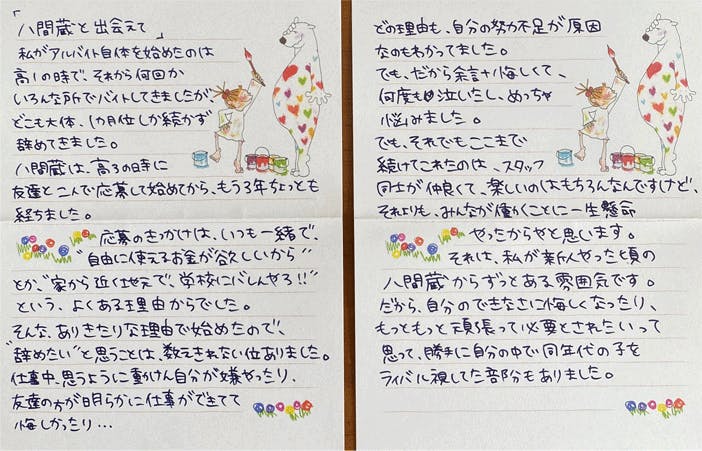 「八間蔵と出会えて」
私がアルバイト自体を始めたのは
高1の時で、それから何回か
いろんな所でバイトしてきましたが
どこも大体、1カ月位しか続かず
辞めてきました。
八間蔵は、高3の時に
友達と二人で応募して始めてから、もう3年ちょっとも
経ちました。
応募のきっかけは、いつも一緒で、
"自由に使えるお金が欲しいから"
とか、"家から近く地元で、学校にバレんやろ!!"
という、よくある理由からでした。
そんな、ありきたりな理由で始めたので、
"辞めたい"と思うことは、数えきれない位ありました。
仕事中、思うように動けん自分が嫌やったり、
友達の方が明らかに仕事ができてて
悔しかったり…
どの理由も、自分の努力不足が原因
なのもわかってました。
でも、だから余計悔しくて、
何度も泣いたし、めっちゃ
悩みました。
でも、それでもここまで
続けてこれたのは、スタッフ
同士が仲良くて、楽しいのはもちろんなんですけど、
それよりも、みんなが働くことに一生懸命
やったからやと思います。
それは、私が新人やった頃の
八間蔵からずっとある雰囲気です。
だから、自分のできなさに悔しくなったり、
もっともっと頑張って必要とされたいって
思って、勝手に自分の中で同年代の子を
ライバル視してた部分もありました。